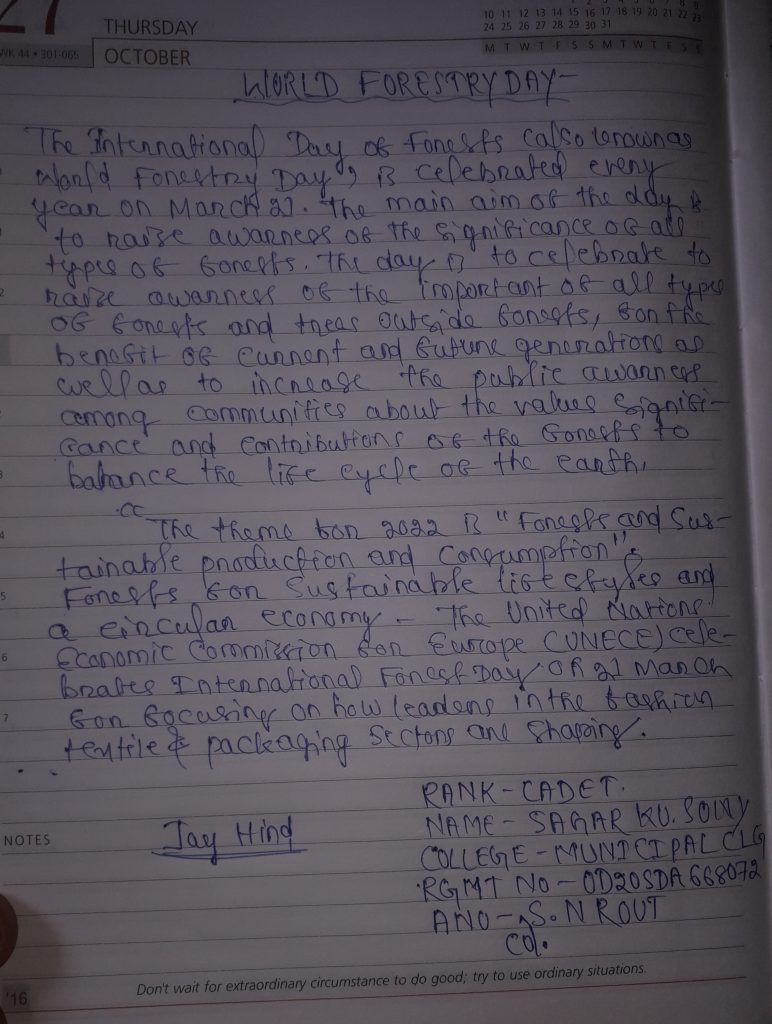 27
THURSDAY
10 11 12 13 14 15 16 17 18 19 20 21 22 23
24 25 26 27 28 29 30 31
M T W T F S S M T W T F S S
WK 44 • 301-065
OCTOBER
WORLD FORESTRY DAY -
The International Day of Forests (also known as
World Forestry Day) is celebrated every
year on March 21. The main aim of the day is
to raise awarness of the significance of all
types of forests. The day is to celebrate to
raise awarness of the important of all types
of forests and treas outside forests, for the
benefit of current and future generations as
well as to increase the public awarness
among communities about the values signifi-
cance and contributions of the forests to
balance the life cycle of the earth.
The theme for 2022 is "Forests and Sus-
tainable production and Consumption".
Forests for Sustainable lifestyles and
a circular economy - The United Nations
Economic Commission for Europe (UNECE) cele-
brates International Forest Day On 21 March
for focusing on how leaders in the fashion
textile & packaging sectors are shaping.
RANK - CADET.
NOTES
Jay Hind
NAME - SAGAR KU.
COLLEGE - MUNICIPAL CLG
RGMT NO - OD20SDA668072
ANO - S. N ROUT
Don't wait for extraordinary circumstance to do good; try to use ordinary situations.
'16